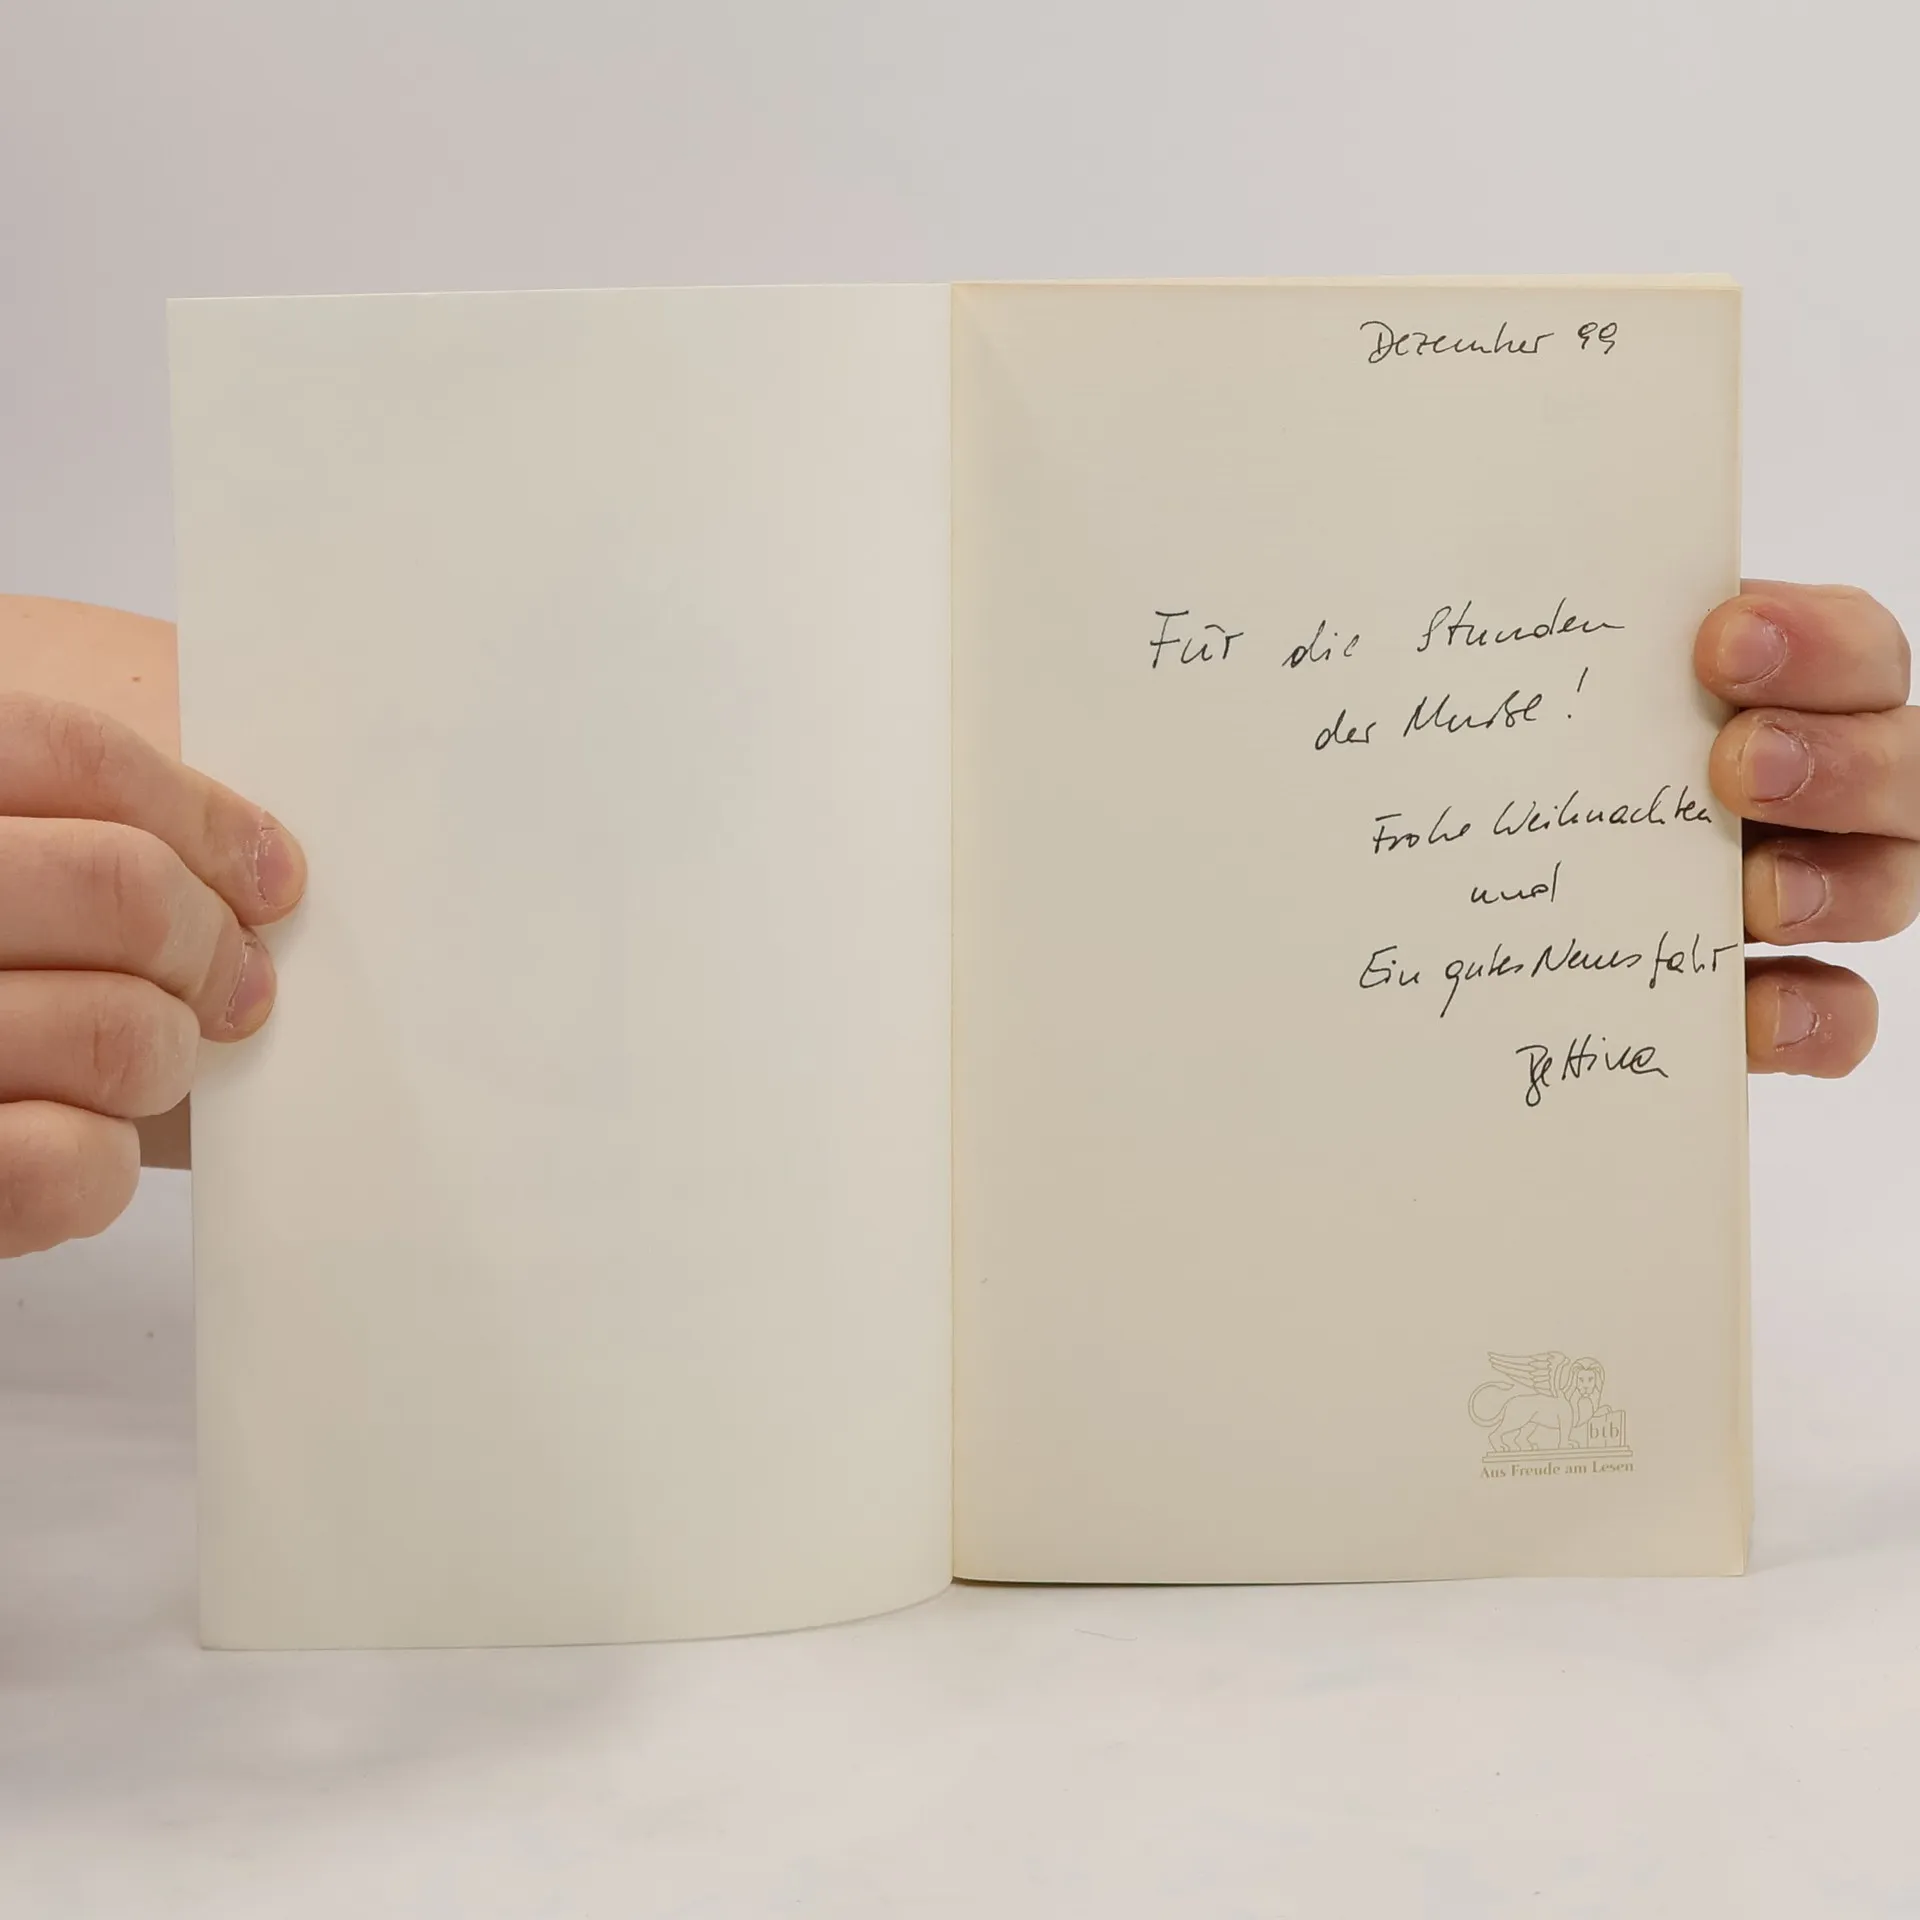 Dezember 99
Für die Stunden
der Muße!
Frohe Weihnachten
und
Ein gutes Neues Jahr
Bettina
btb
Aus Freude am Lesen